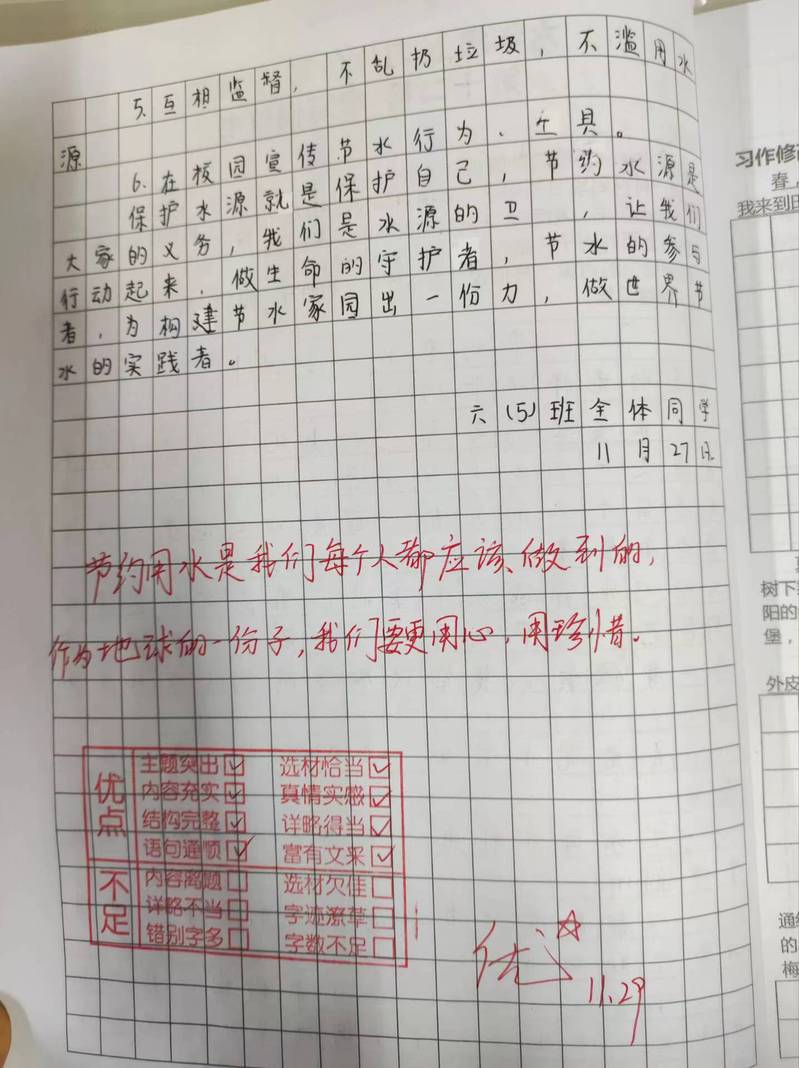 5.互相监督,不乱扔垃圾,不滥用水
源
6.在校园宣传节水行为、工具。
保护水源就是保护自己,节约水源是
大家的义务,我们是水源的卫,让我们
行动起来,做生命的守护者,节水的参与
者,为构建节水家园出一份力,做世界节
水的实践者。
六(5)班全体同学
11月27日
节约用水是我们每个人都应该做到的,
作为地球的一份子,我们要更用心,用珍惜。
优点
主题突出 选材恰当
内容充实 真情实感
结构完整 详略得当
语句通顺 富有文采
不足
内容离题 选材欠佳
详略不当 字迹潦草
错别字多 字数不足
优 11.29
习作修
春,
我来到
树下
阳的
堡,
外皮
通
的
梅